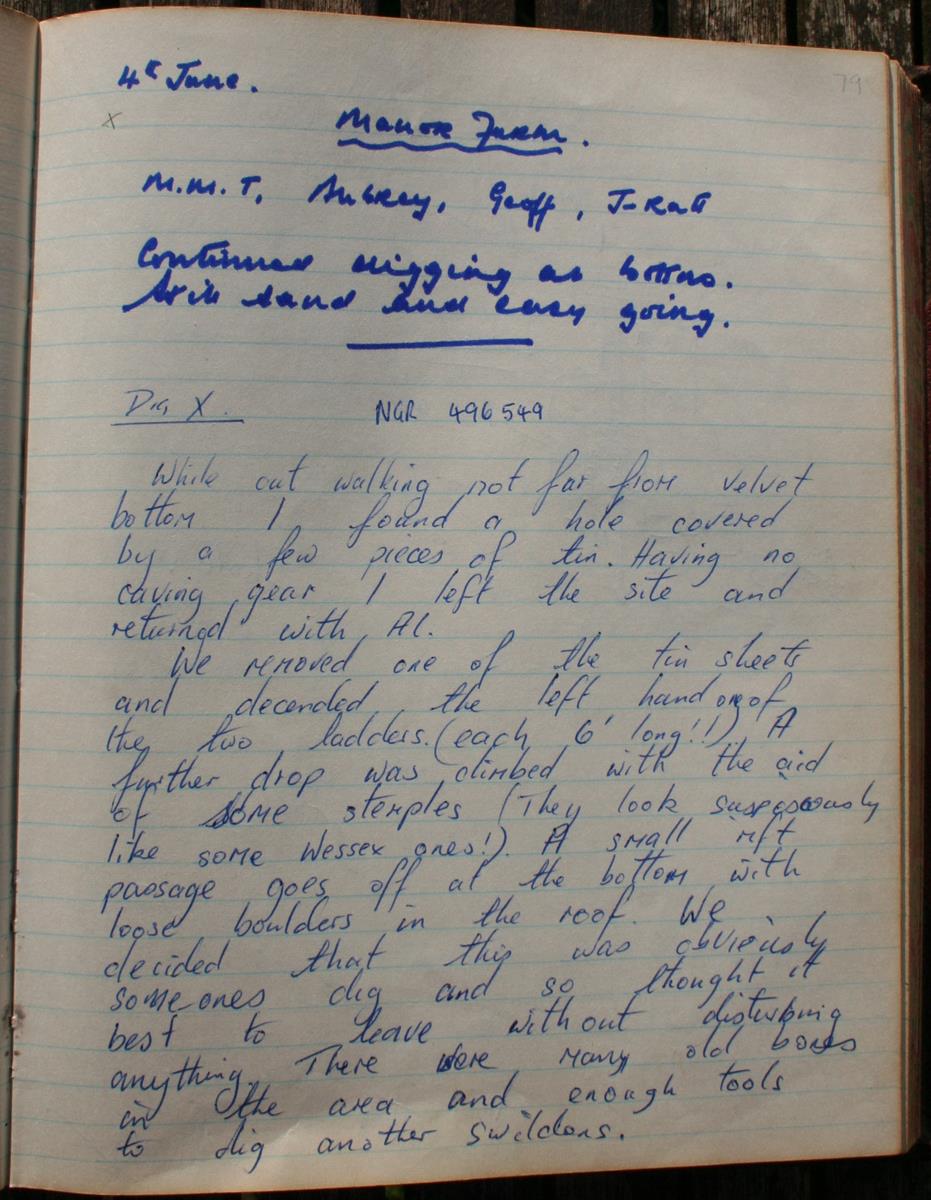 79
4th June.
x
Manor Farm.
M.M.T, Aubrey, Geoff, J-Ratt
Continued digging at bottom.
Still sand and easy going.
Dig X. NGR 496549
While out walking not far from velvet
bottom I found a hole covered
by a few pieces of tin. Having no
caving gear I left the site and
returned with Al.
We removed one of the tin sheets
and decended the left hand one of
the two ladders. (each 6' long!!) A
further drop was climbed with the aid
of some stemples (They look suspisously
like some Wessex ones!). A small rift
passage goes off at the bottom with
loose boulders in the roof. We
decided that this was obviously
someones dig and so thought it
best to leave without disturbing
anything. There were many old bones
in the area and enough tools
to dig another swildons.